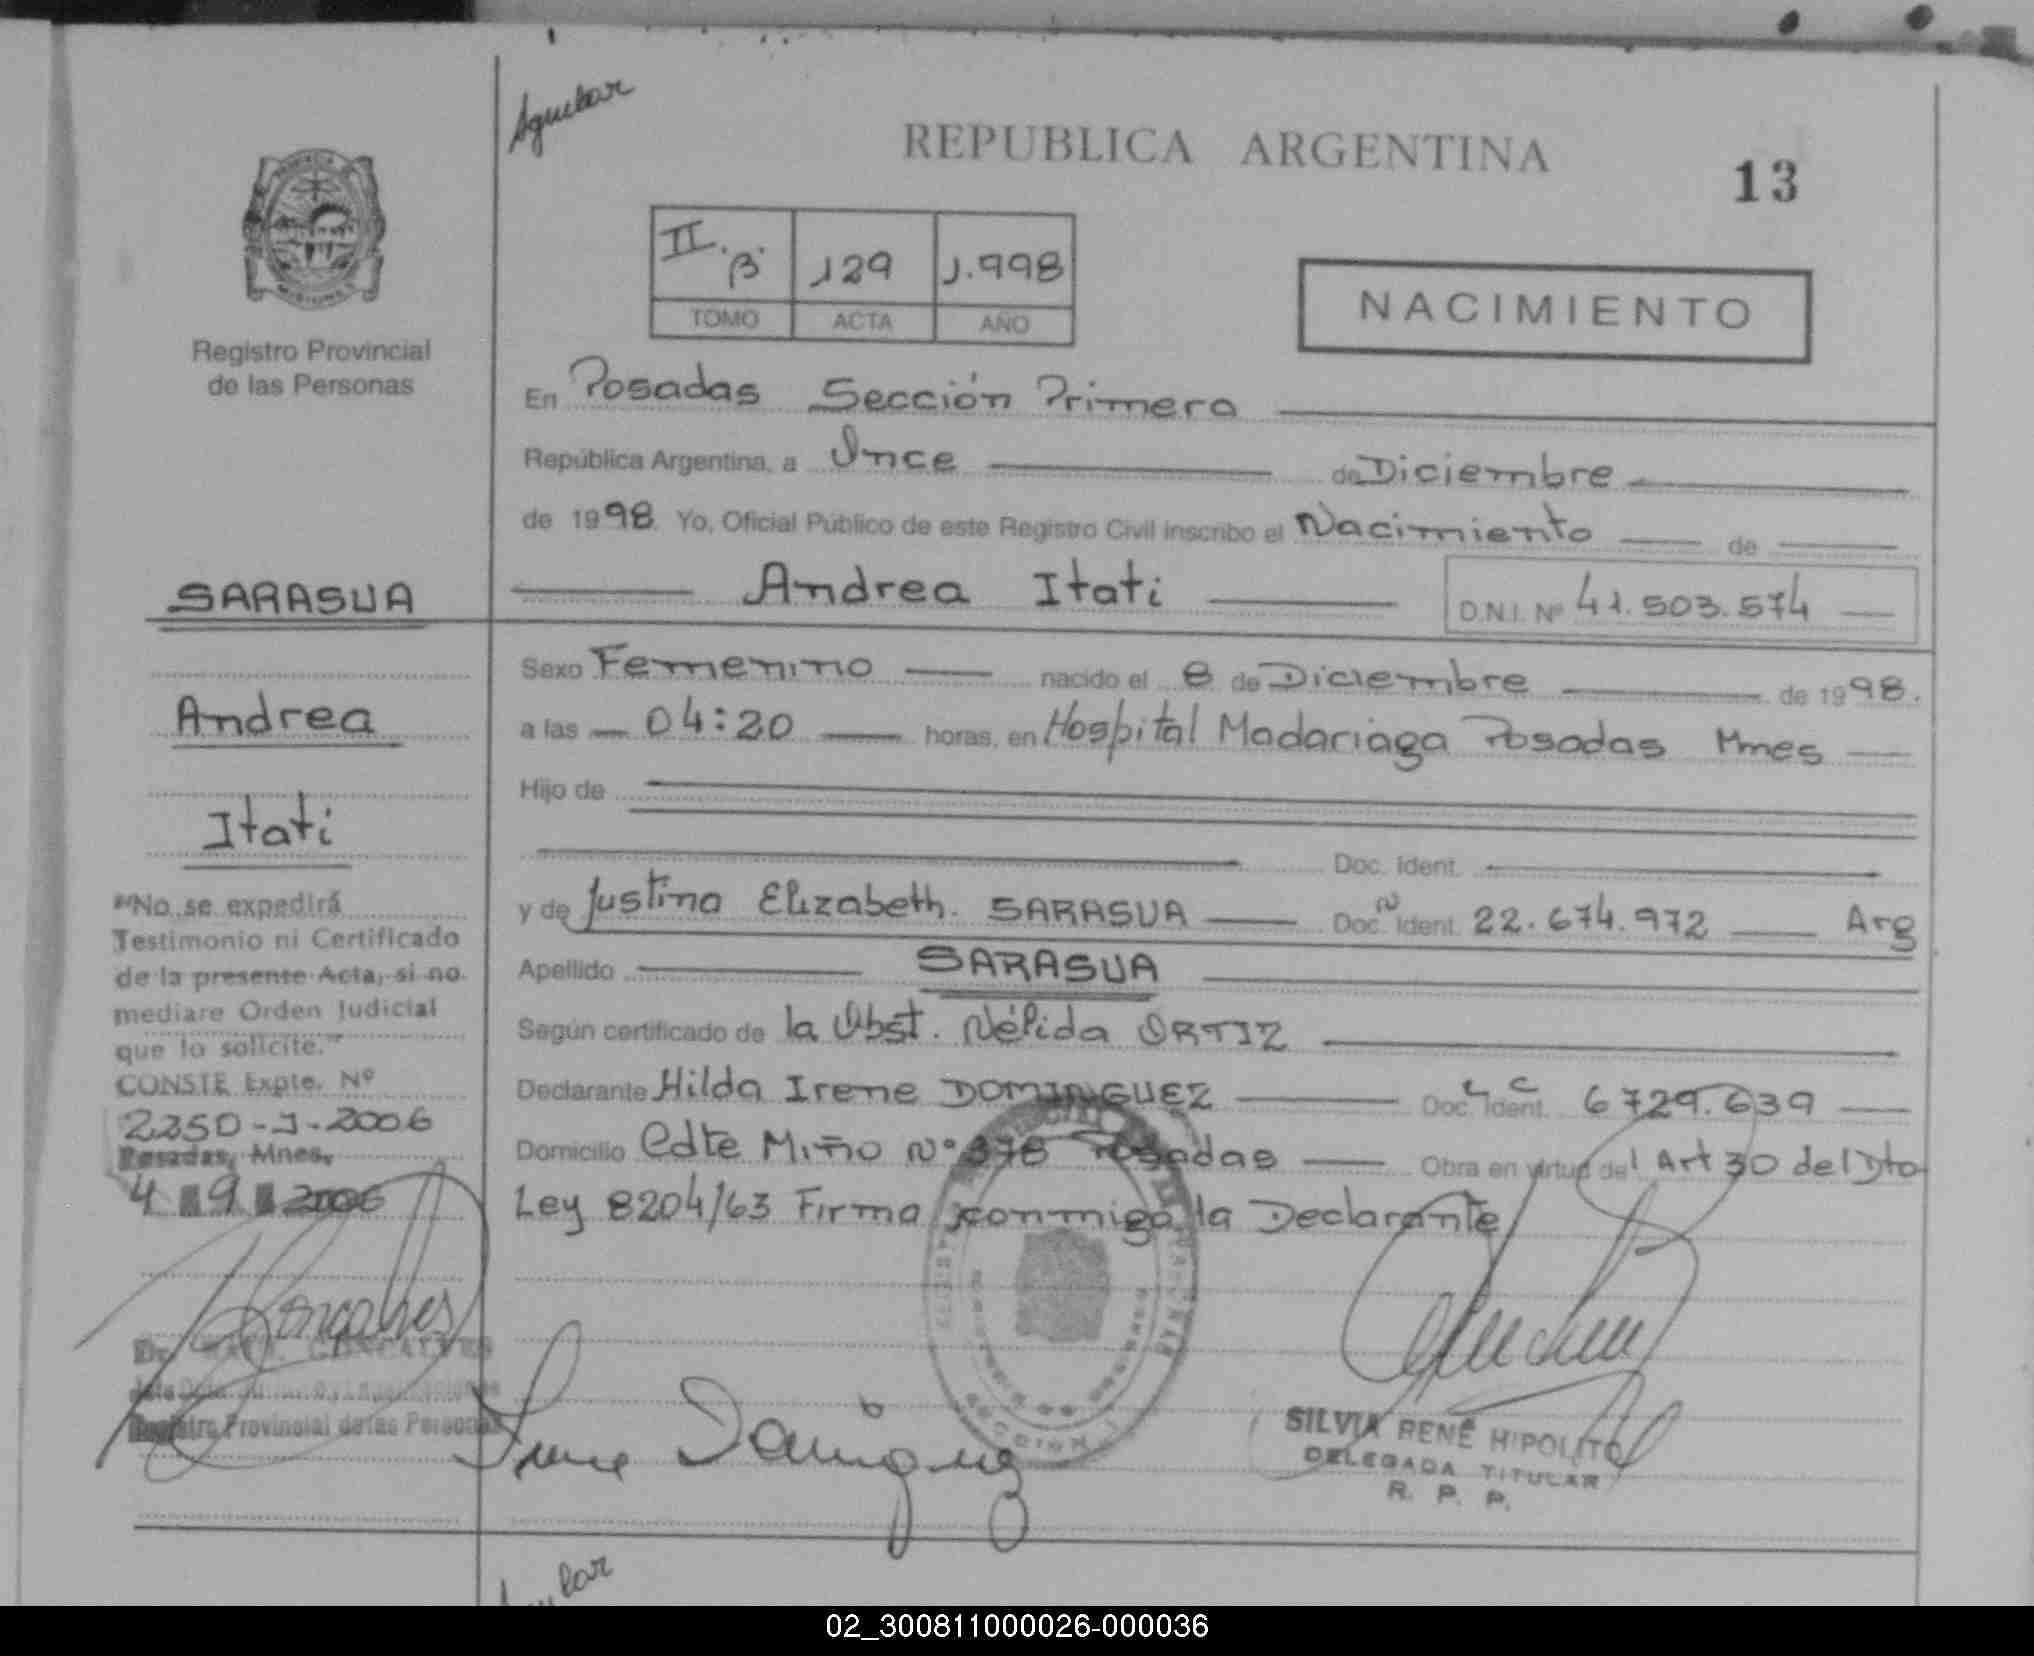 Aguilar
REPUBLICA ARGENTINA
13
II. B. 129 1.998
TOMO ACTA AÑO
NACIMIENTO
Registro Provincial
de las Personas
En Posadas Sección Primera
República Argentina, a Once de Diciembre
de 1998. Yo, Oficial Público de este Registro Civil inscribo el Nacimiento de
Andrea Itati D.N.I. Nº 41.503.574
Sexo Femenino nacido el 8 de Diciembre de 1998.
a las 04:20 horas, en Hospital Madariaga Posadas Mnes
Hijo de
Doc. Ident.
y de Justina Elizabeth. SARASUA Doc. Ident. 22.674.972 Arg
Apellido SARASUA
Según certificado de la Obst. Nélida ORTIZ
Declarante Hilda Irene DOMINGUEZ Doc. Ident. L C 6729.639
Domicilio Cdte Miño Nº 378 Posadas Obra en virtud del Art 30 del Dto
Ley 8204/63 Firma conmigo la Declarante
SARASUA
Andrea
Itati
"No se expedirá
Testimonio ni Certificado
de la presente Acta, si no
mediare Orden Judicial
que lo solicite."
CONSTE Expte. Nº
2250-J-2006
Posadas, Mnes,
4 9 2006
Goncalves
Dr. GONCALVES
Registro Provincial de las Personas
Irene Dominguez
SECCION 1
SILVIA RENÉ HIPOLITO
DELEGADA TITULAR
R. P. P.
02_300811000026-000036